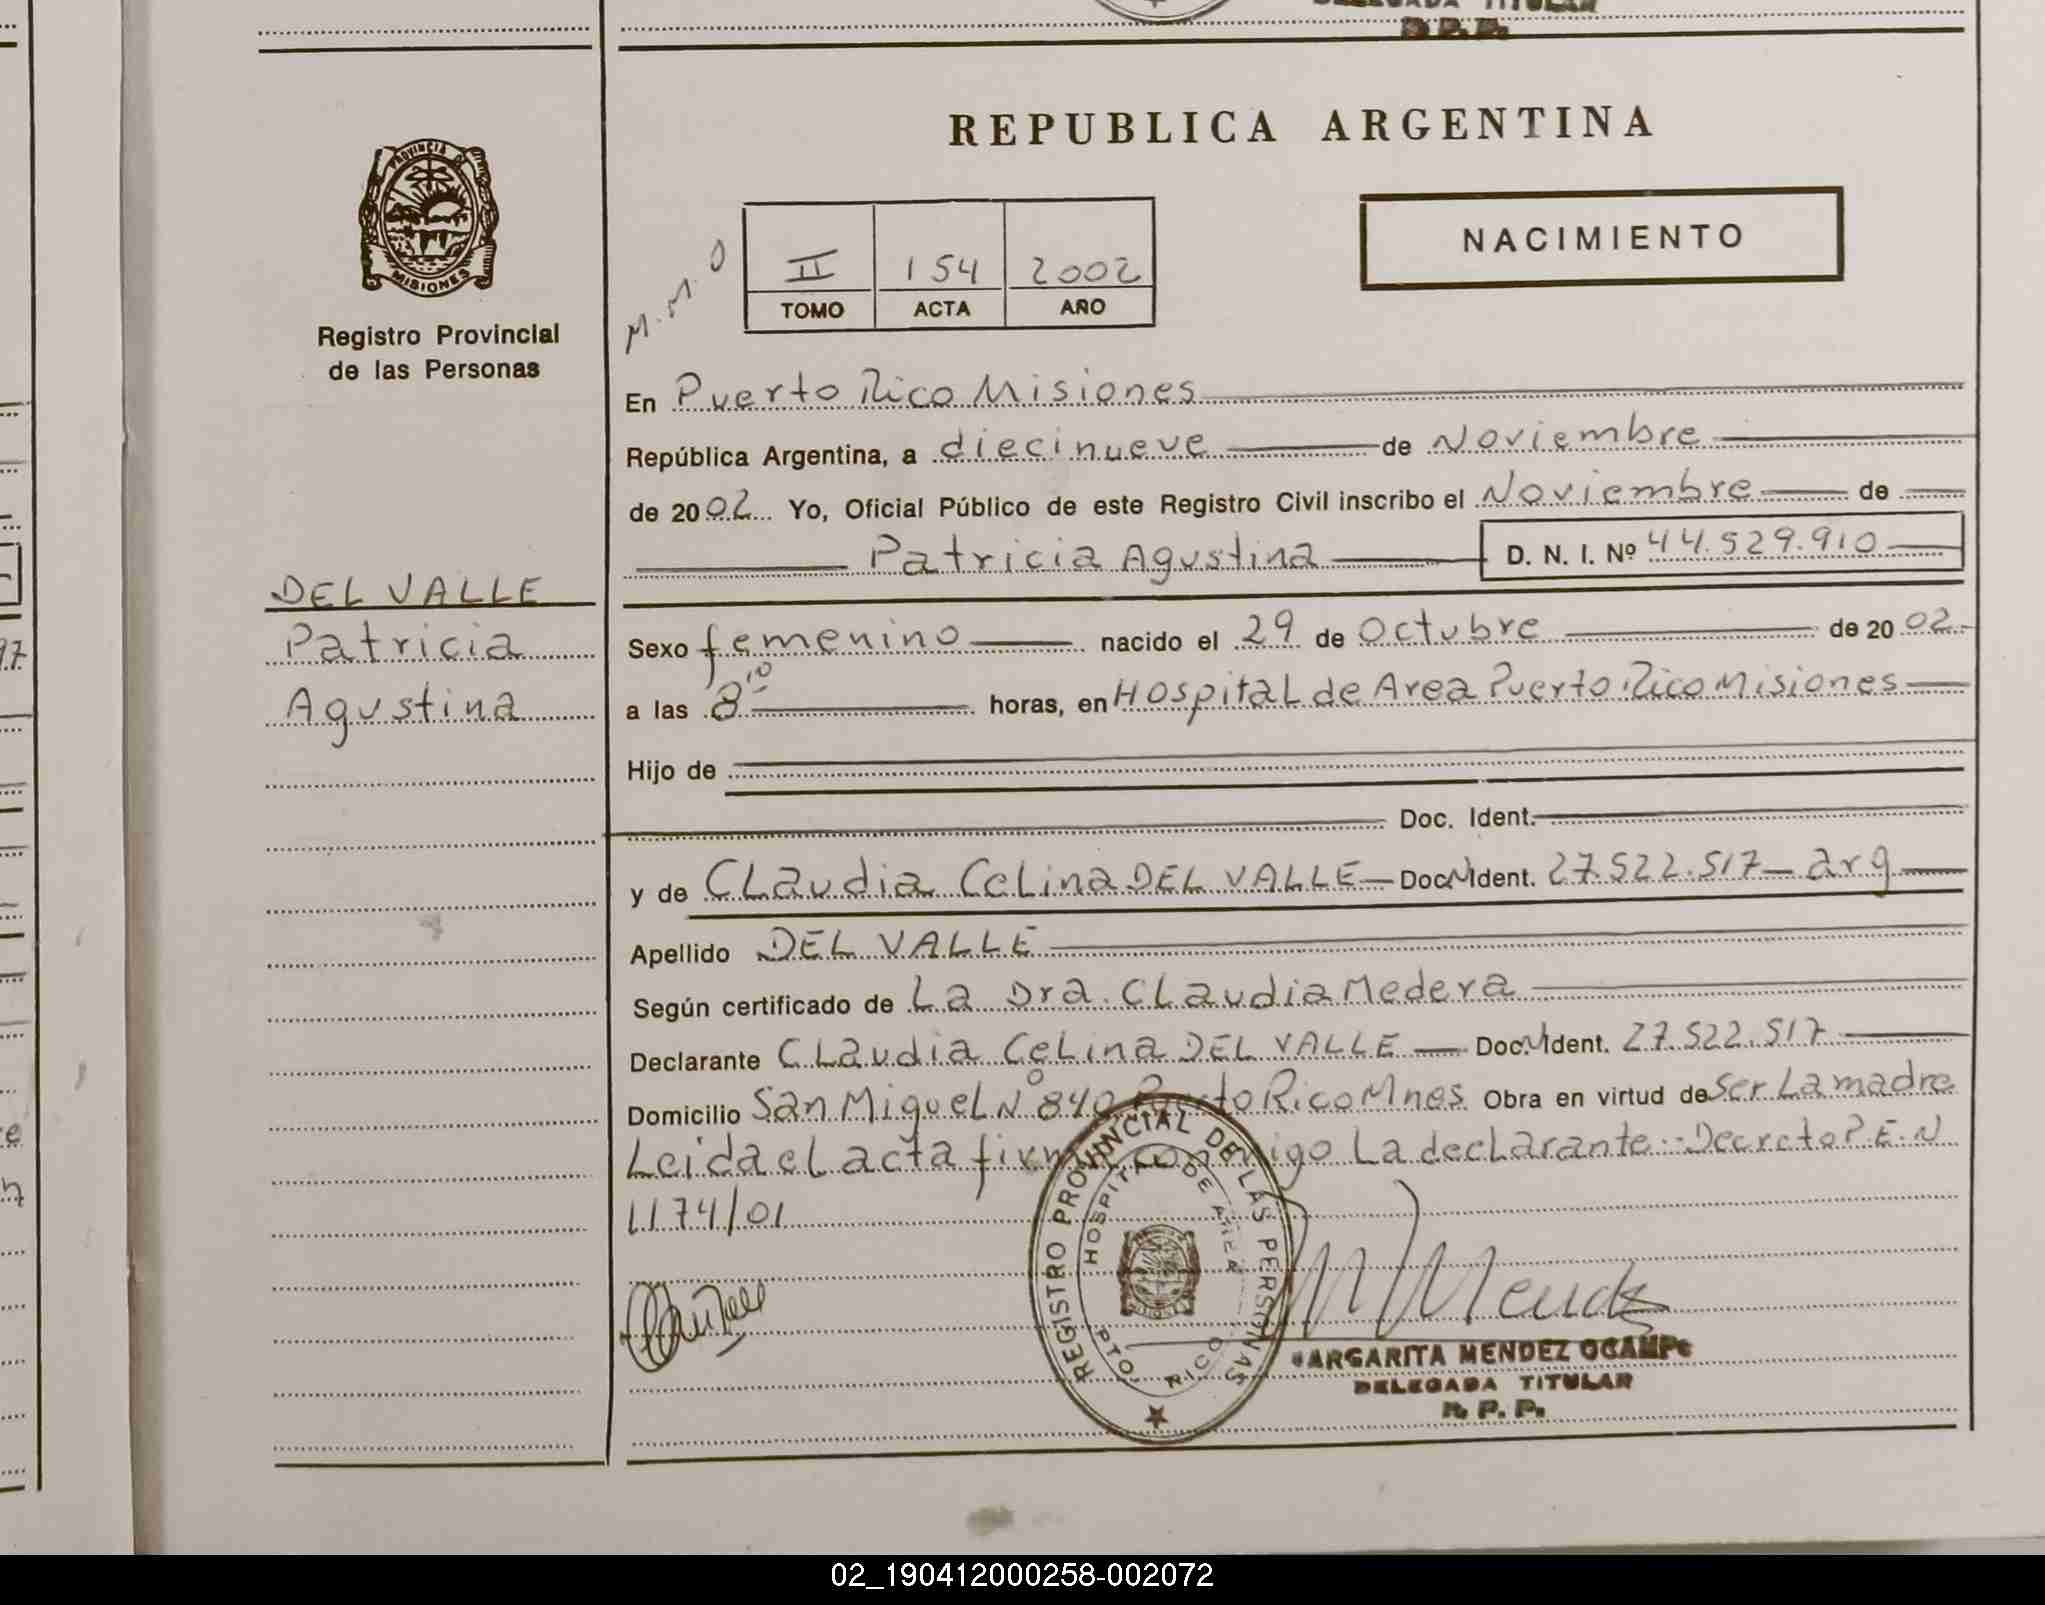 DELEGADA TITULAR
R. P. P.
PROVINCIA DE
MISIONES
Registro Provincial
de las Personas
REPUBLICA ARGENTINA
NACIMIENTO
M. M. O
II 154 2002
TOMO ACTA AÑO
En Puerto Rico Misiones
República Argentina, a diecinueve de Noviembre
de 2002 Yo, Oficial Público de este Registro Civil inscribo el Noviembre de
Patricia Agustina D. N. I. Nº 44.529.910
DEL VALLE
Patricia
Agustina
Sexo femenino nacido el 29 de Octubre de 2002
a las 8 10 horas, en Hospital de Area Puerto Rico Misiones
Hijo de
Doc. Ident.
y de Claudia Celina DEL VALLE Doc N Ident. 27.522.517 arg
Apellido DEL VALLE
Según certificado de La Dra. Claudia Medera
Declarante Claudia Celina DEL VALLE Doc. N Ident. 27.522.517
Domicilio San Miguel Nº 840 Puerto Rico Mnes Obra en virtud de Ser La madre
Leida el acta firma conmigo La declarante: Decreto P.E.N
1174/01
REGISTRO PROVINCIAL DE LAS PERSONAS
HOSPITAL DE AREA
PTO. RICO
MARGARITA MENDEZ OCAMPO
DELEGADA TITULAR
R. P. P.
02_190412000258-002072